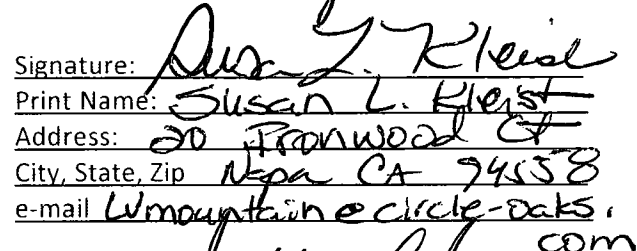 Signature: Susan L. Kleist
Print Name: Susan L. Kleist
Address: 20 Ironwood Ct
City, State, Zip Napa CA 94558
e-mail lvmountain@circle-oaks.
com